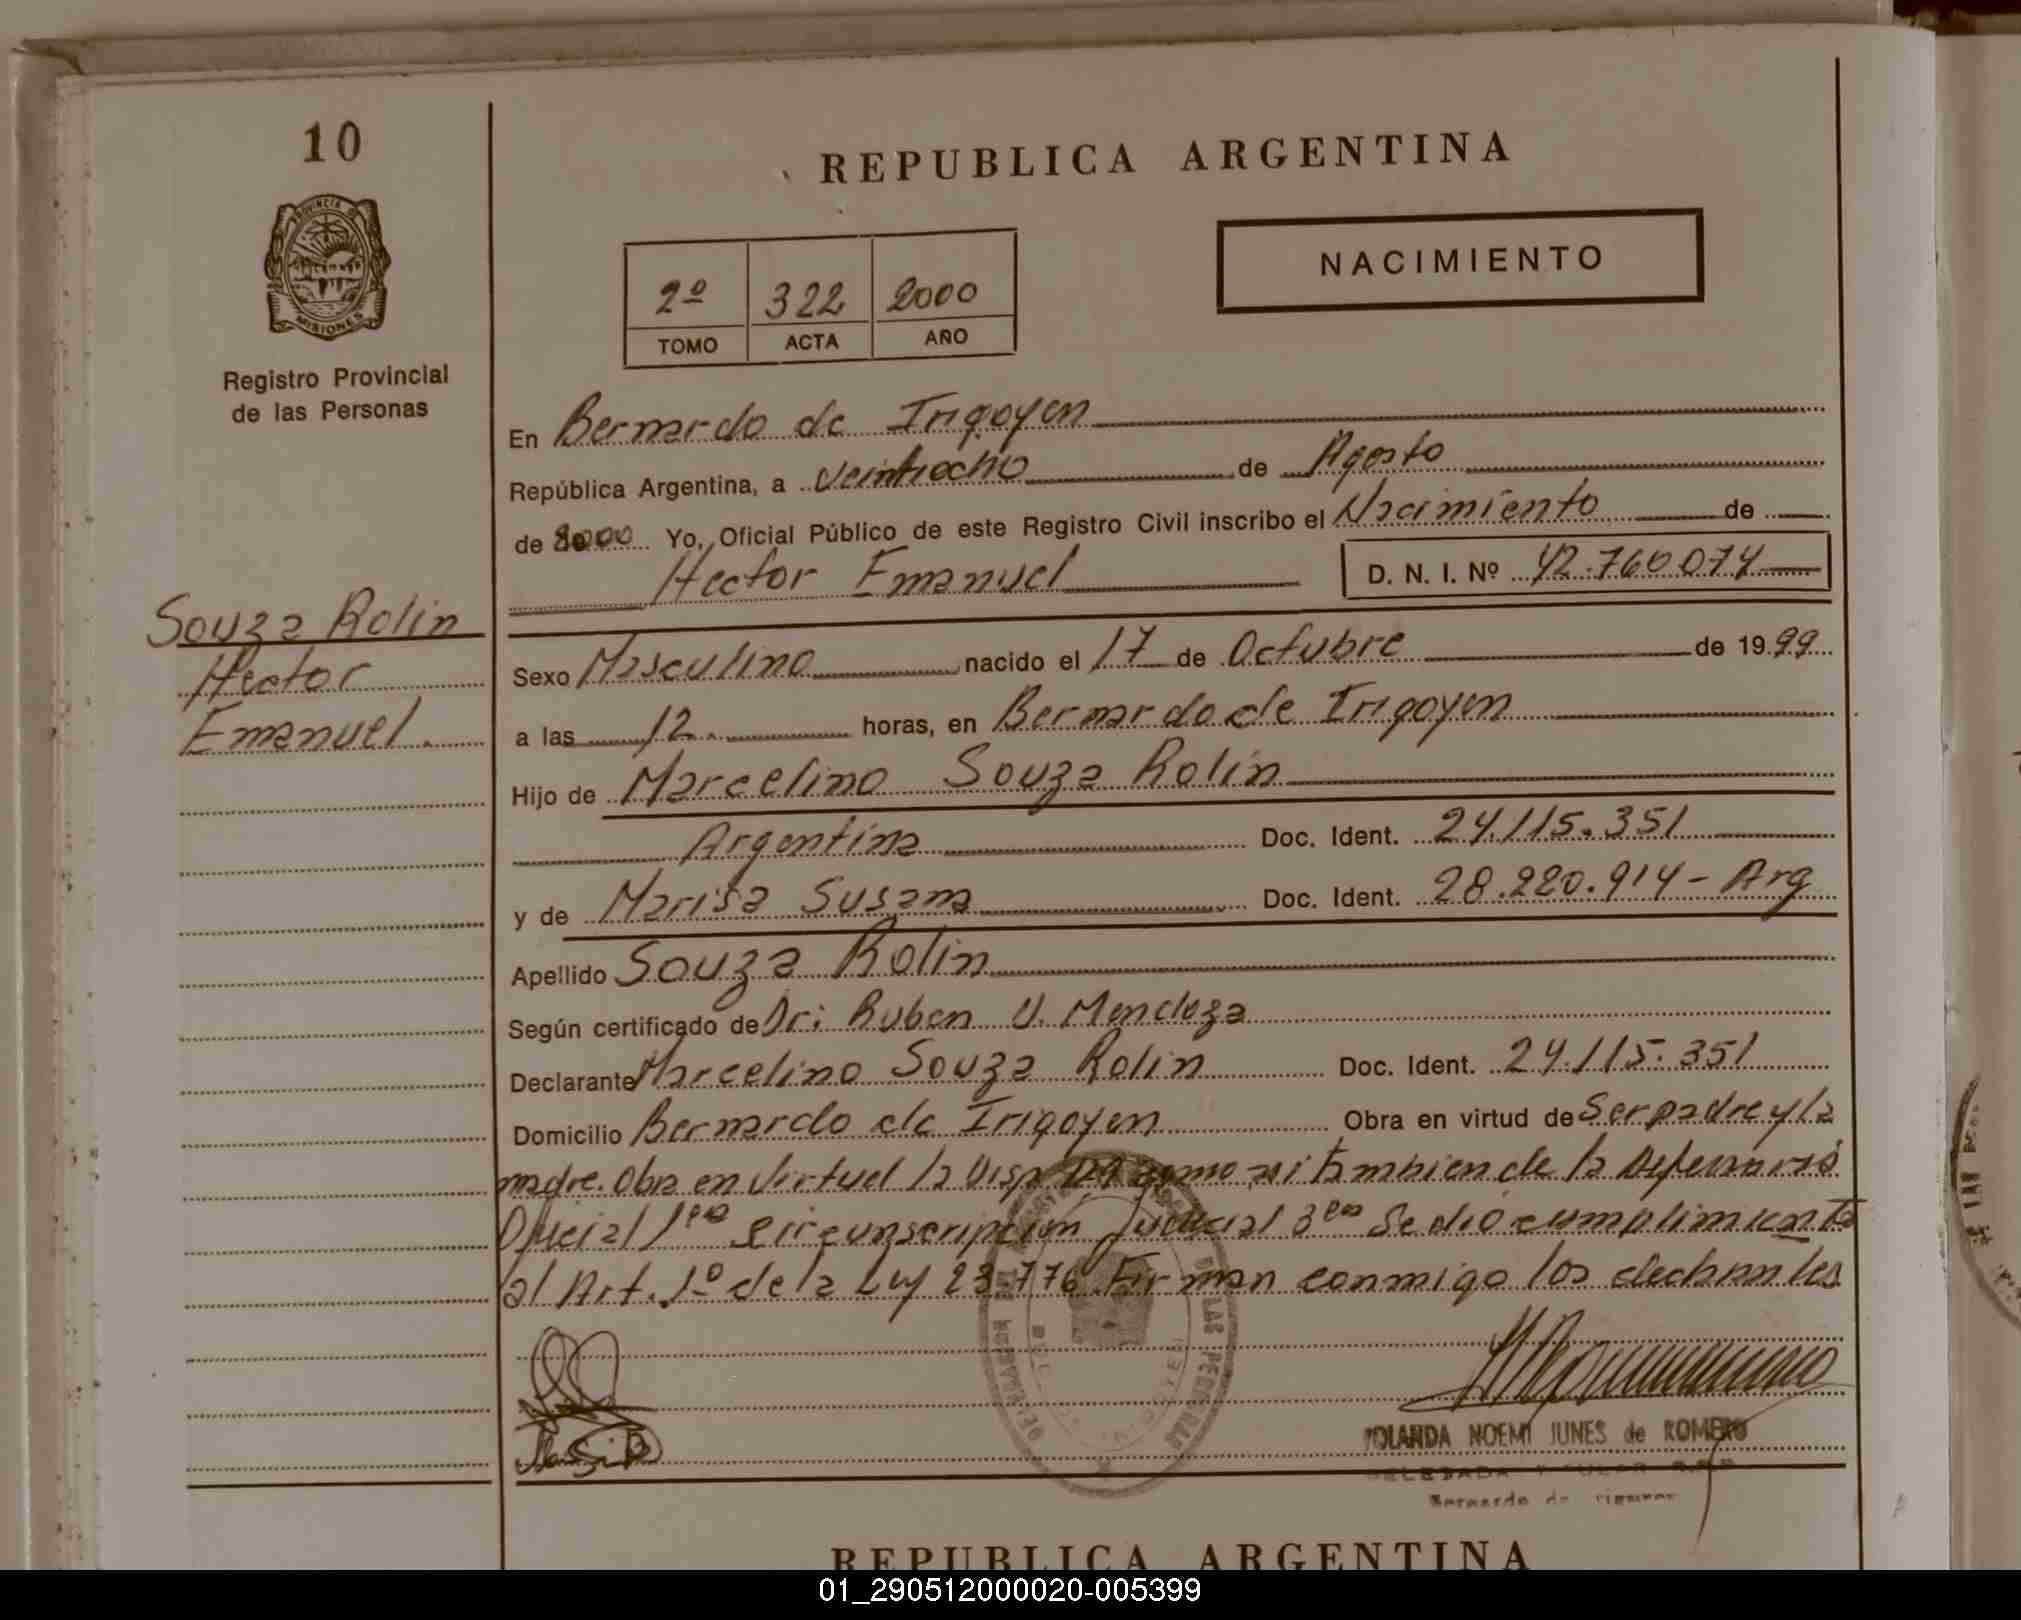 10
PROVINCIA DE
MISIONES
Registro Provincial
de las Personas
REPUBLICA ARGENTINA
NACIMIENTO
2º 322 2000
TOMO ACTA AÑO
En Bernardo de Irigoyen
República Argentina, a veintiocho de Agosto
de 2000 Yo, Oficial Público de este Registro Civil inscribo el Nacimiento de
Hector Emanuel D. N. I. Nº 42.760.074
Souza Rolin
Hector
Emanuel.
Sexo Masculino nacido el 17 de Octubre de 1999
a las 12. horas, en Bernardo de Irigoyen
Hijo de Marcelino Souza Rolin
Argentina Doc. Ident. 24.115.351
y de Marisa Susana Doc. Ident. 28.220.914 - Arg
Apellido Souza Rolin
Según certificado de Dr: Ruben V. Mendoza
Declarante Marcelino Souza Rolin Doc. Ident. 24.115.351
Domicilio Bernardo de Irigoyen Obra en virtud de Ser padre y la
madre. Obra en virtud la Disp como asi tambien de la Defensoria
Oficial 1era circunscripcion Judicial 3era Se dio cumplimiento
al Art. 1º de la Ley 23.776 Firman conmigo los declarantes
YOLANDA NOEMI JUNES de ROMERO
DELEGADA TITULAR R.P.P.
Bernardo de Irigoyen
REPUBLICA ARGENTINA
01_290512000020-005399